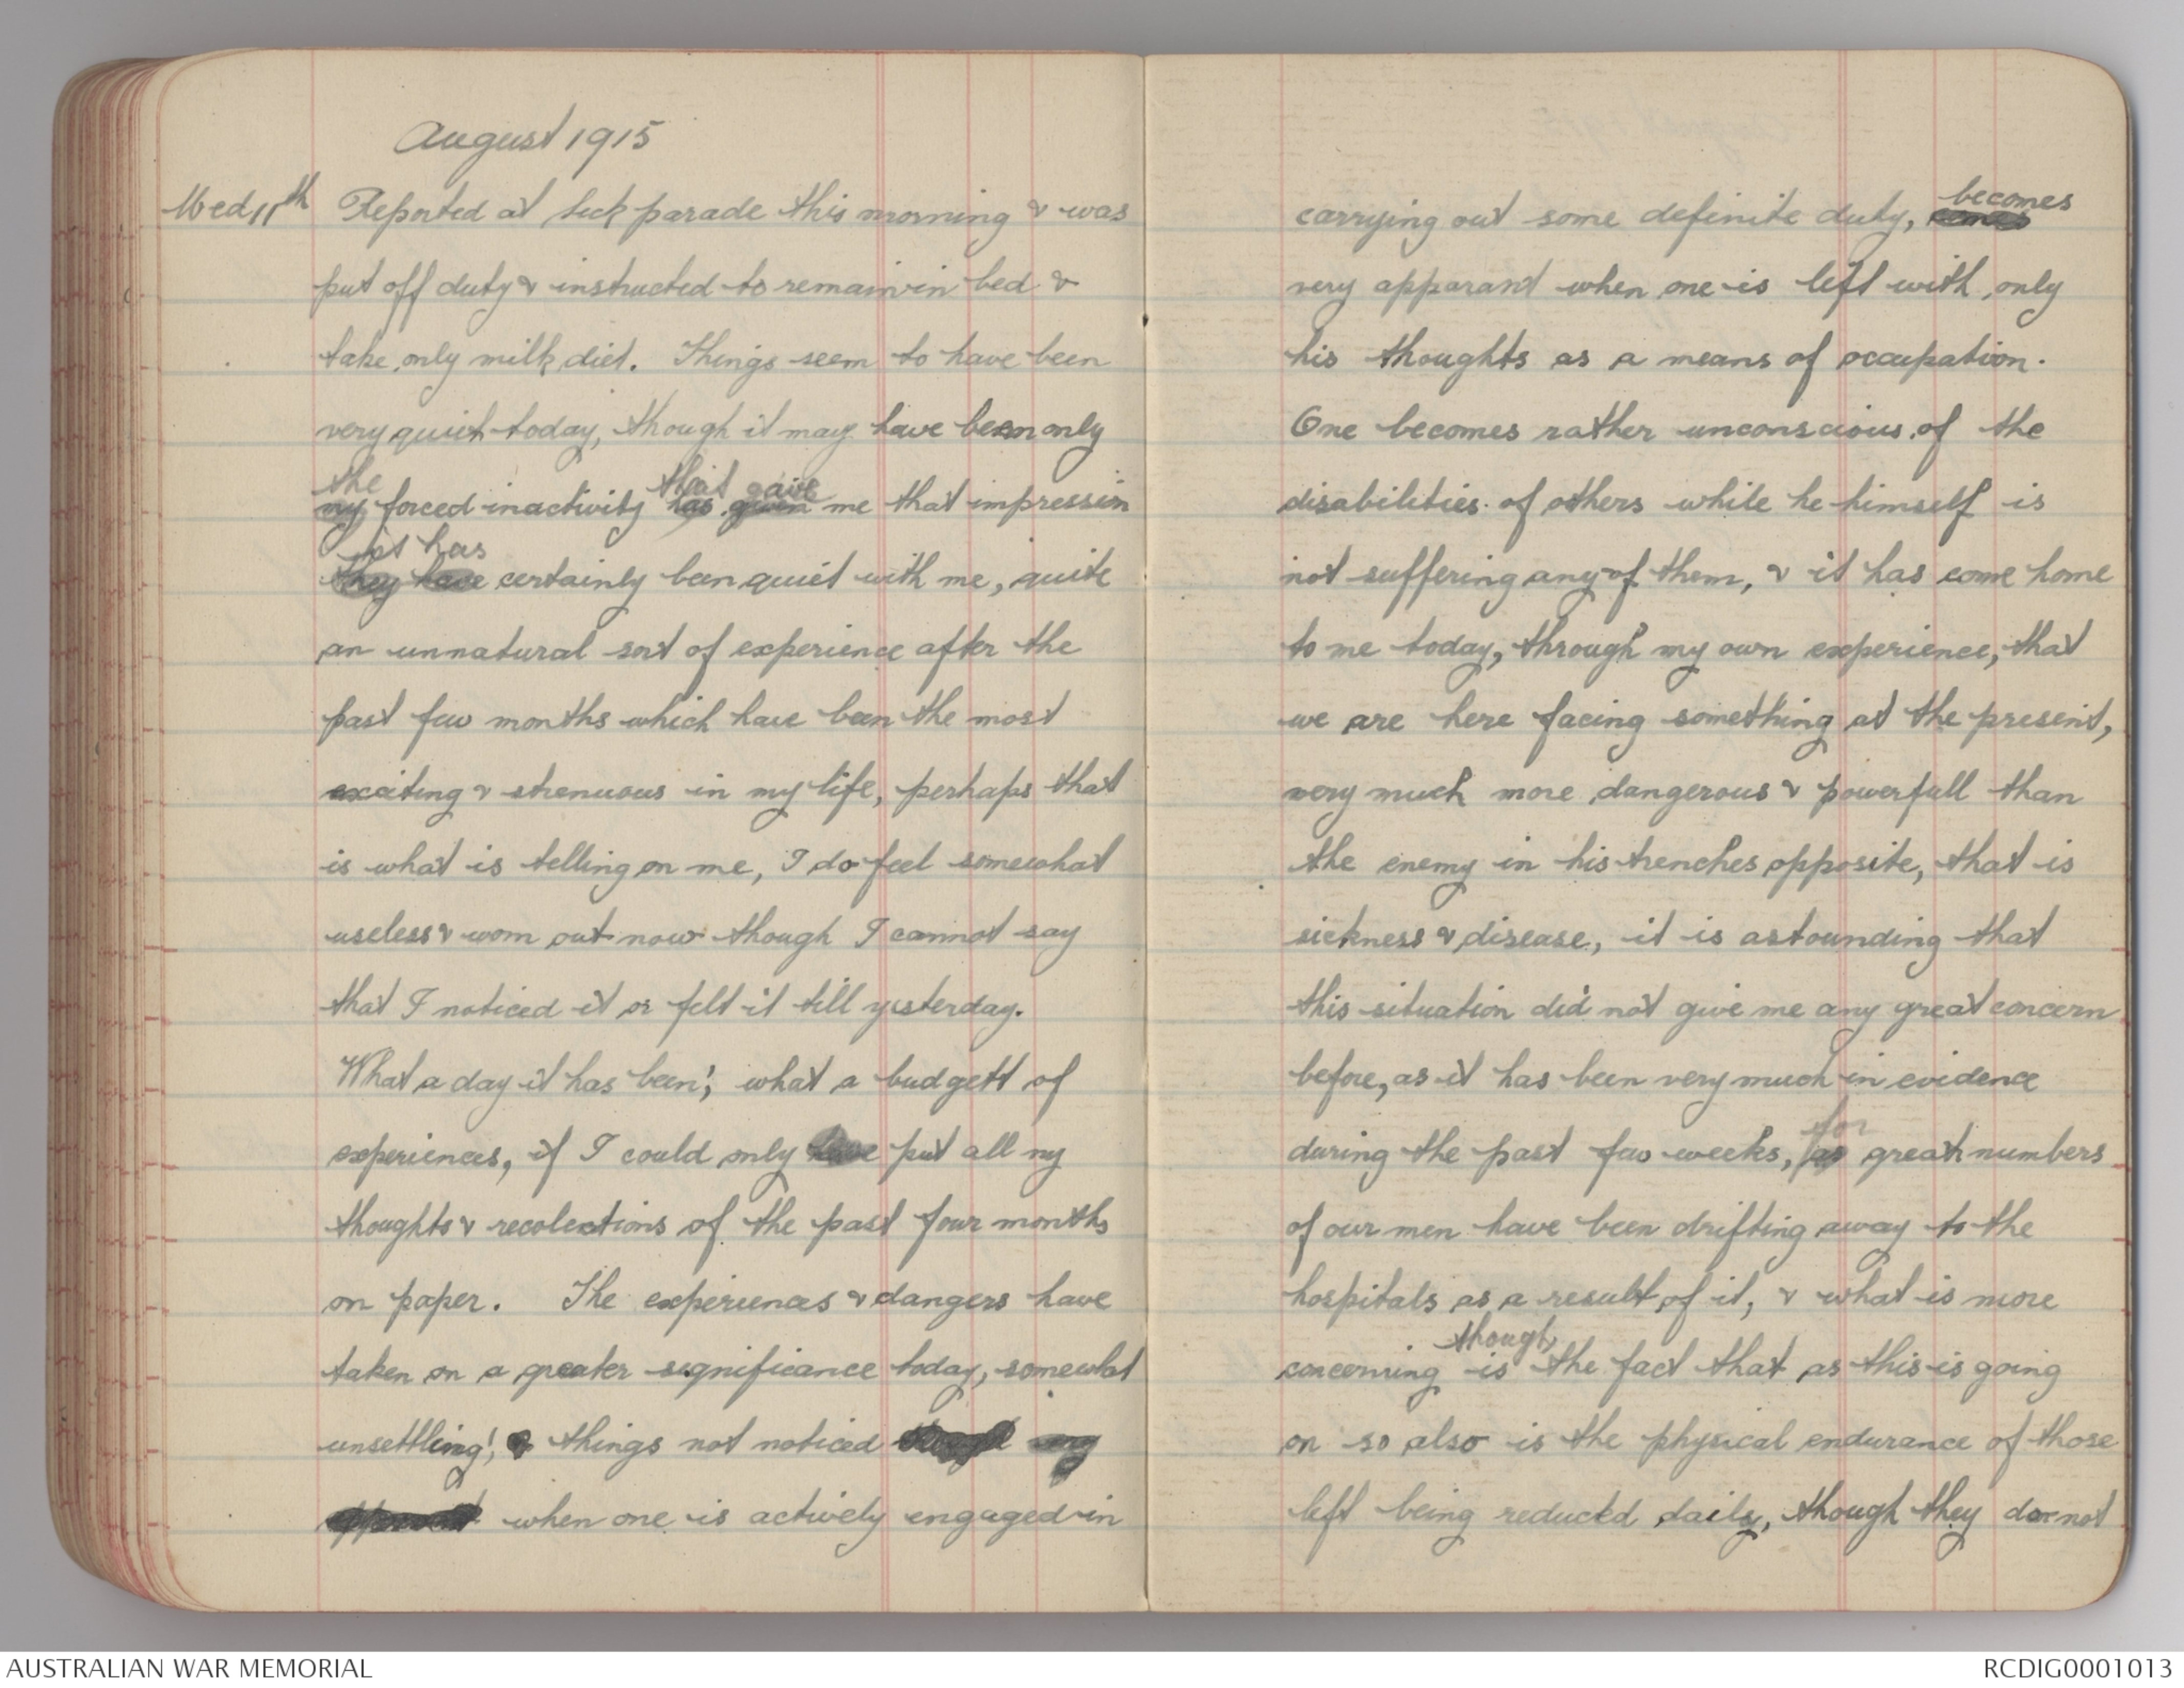 August 1915
Wed 11th Reported at sick parade this morning & was
put off duty & instructed to remain in bed &
take only milk diet. Things seem to have been
very quiet today, though it may have been only
the that gave
my forced inactivity has given me that impression
it has
they have certainly been quiet with me, quite
an unnatural sort of experience after the
past few months which have been the most
exciting & strenuous in my life, perhaps that
is what is telling on me, I do feel somewhat
useless & worn out now though I cannot say
that I noticed it or felt it till yesterday.
What a day it has been; what a budgett of
experiences, if I could only have put all my
thoughts & recolections of the past four months
on paper. The experiences & dangers have
taken on a greater significance today, somewhat
unsettling; & things not noticed
when one is actively engaged in
becomes
carrying out some definite duty, comes
very apparant when one is left with only
his thoughts as a means of occupation.
One becomes rather unconscious of the
disabilities of others while he himself is
not suffering any of them, & it has come home
to me today, through my own experience, that
we are here facing something at the present,
very much more dangerous & powerfull than
the enemy in his trenches opposite, that is
sickness & disease, it is astounding that
this situation did not give me any great concern
before, as it has been very much in evidence
for
during the past few weeks, as great numbers
of our men have been drifting away to the
hospitals as a result of it, & what is more
though
concerning is the fact that as this is going
on so also is the physical endurance of those
left being reduced daily, though they do not
AUSTRALIAN WAR MEMORIAL
RCDIG0001013